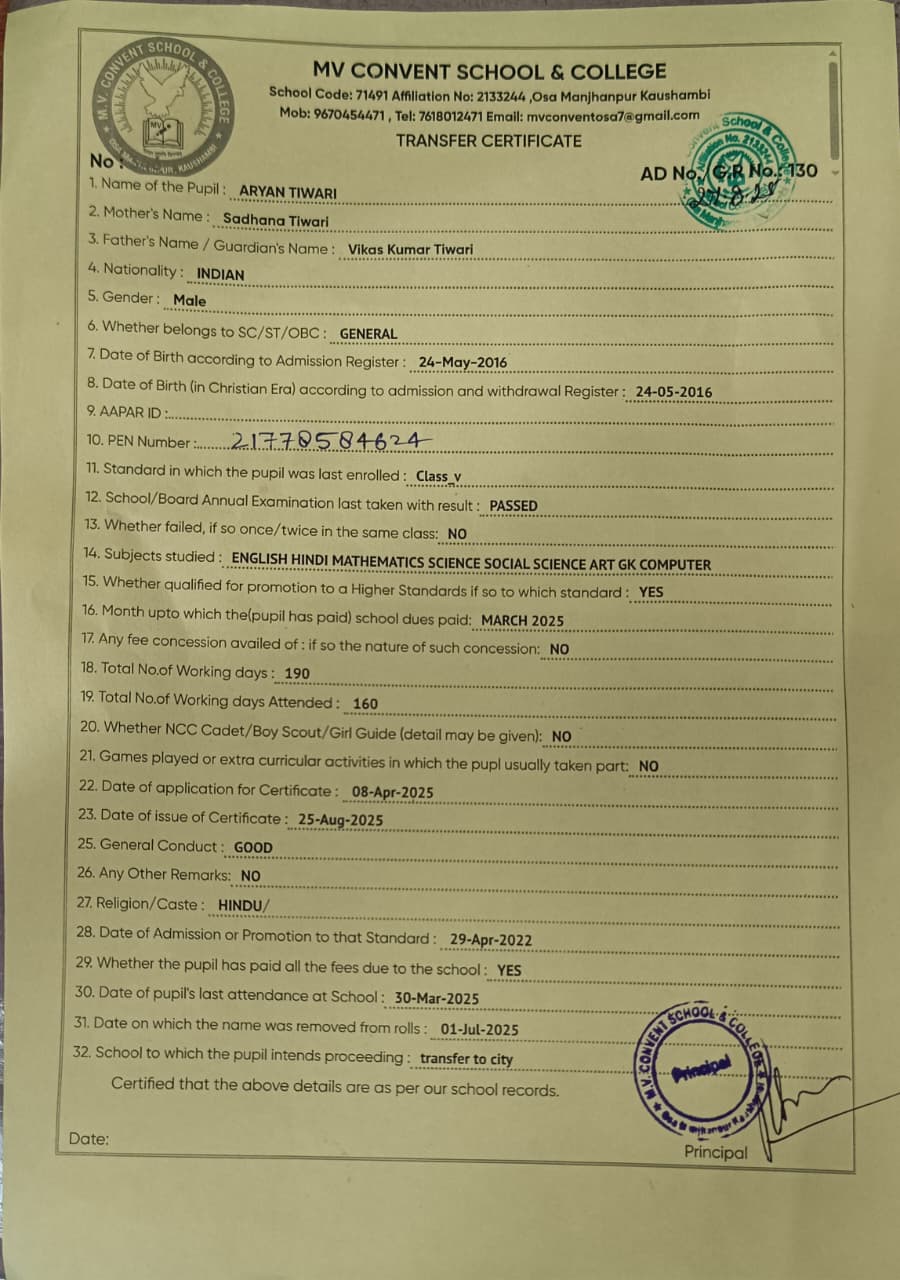 M.V. CONVENT SCHOOL & COLLEGE
MV
MV CONVENT SCHOOL & COLLEGE
School Code: 71491 Affiliation No: 2133244 ,Osa Manjhanpur Kaushambi
Mob: 9670454471 , Tel: 7618012471 Email: mvconventosa7@gmail.com
TRANSFER CERTIFICATE
No :
AD No./G.R No.: 130
Convent School & College
Affiliation No. 2133244
1. Name of the Pupil : ARYAN TIWARI
2. Mother's Name : Sadhana Tiwari
3. Father's Name / Guardian's Name : Vikas Kumar Tiwari
4. Nationality : INDIAN
5. Gender : Male
6. Whether belongs to SC/ST/OBC : GENERAL
7. Date of Birth according to Admission Register : 24-May-2016
8. Date of Birth (in Christian Era) according to admission and withdrawal Register : 24-05-2016
9. AAPAR ID :
10. PEN Number : 21770584624
11. Standard in which the pupil was last enrolled : Class_v
12. School/Board Annual Examination last taken with result : PASSED
13. Whether failed, if so once/twice in the same class: NO
14. Subjects studied : ENGLISH HINDI MATHEMATICS SCIENCE SOCIAL SCIENCE ART GK COMPUTER
15. Whether qualified for promotion to a Higher Standards if so to which standard : YES
16. Month upto which the(pupil has paid) school dues paid: MARCH 2025
17. Any fee concession availed of : if so the nature of such concession: NO
18. Total No.of Working days : 190
19. Total No.of Working days Attended : 160
20. Whether NCC Cadet/Boy Scout/Girl Guide (detail may be given): NO
21. Games played or extra curricular activities in which the pupl usually taken part: NO
22. Date of application for Certificate : 08-Apr-2025
23. Date of issue of Certificate : 25-Aug-2025
25. General Conduct : GOOD
26. Any Other Remarks: NO
27. Religion/Caste : HINDU/
28. Date of Admission or Promotion to that Standard : 29-Apr-2022
29. Whether the pupil has paid all the fees due to the school : YES
30. Date of pupil's last attendance at School : 30-Mar-2025
31. Date on which the name was removed from rolls : 01-Jul-2025
32. School to which the pupil intends proceeding : transfer to city
Certified that the above details are as per our school records.
M.V. CONVENT SCHOOL & COLLEGE
Principal
Date:
Principal